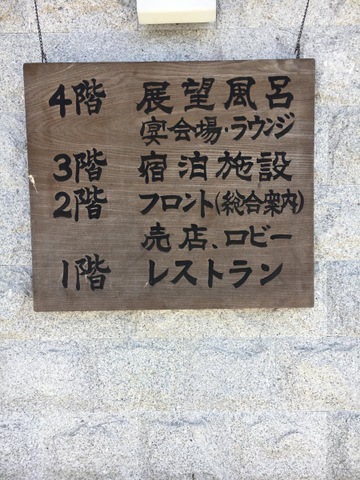 4階 展望風呂
宴会場・ラウンジ
3階 宿泊施設
2階 フロント(総合案内)
売店、ロビー
1階 レストラン